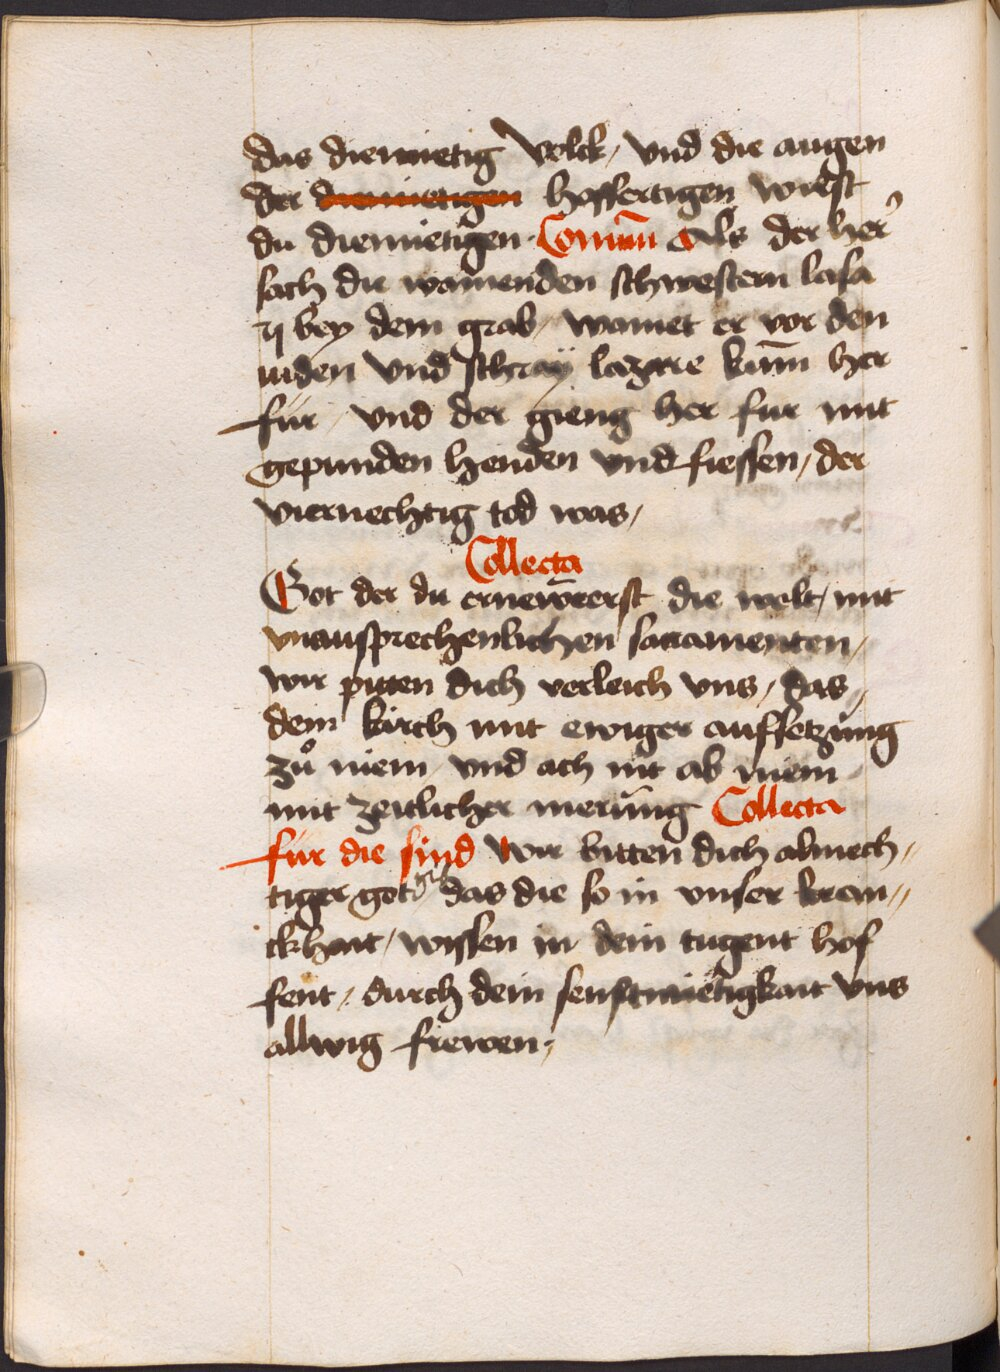 das diemietig Volck / vnd die augen
der diemietigen hoffertigen wirst
du diemietigen · Comūn Als der her
sach die wainenden schwestern lasa
rj bey dem grab / wainet er vor den
iuden vnd schray lazere kūm her
für / vnd der gieng her fur mit
gepunden henden vnd fiessen / der
viernechtig tod was /
Collecta
Got der du ernewrerst die welt / mit
vnausprechenlichen sacramenten /
wir piten dich verleich vns / das
dein kirch mit ewiger auffsetzung
zů niem / vnd ach nit ab niem
mit zeitlicher nierūng Collecta
für die sünd Wir bitten dich almech /
tiger got das die so in vnser kran //
ckhait / wissen in dein tugent hof
fent / durch dein senftmietigkait vns
allwig frewen ·